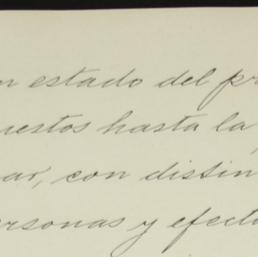 n estado del pr
uestos hasta la
ar, con distin
ersonas y efect